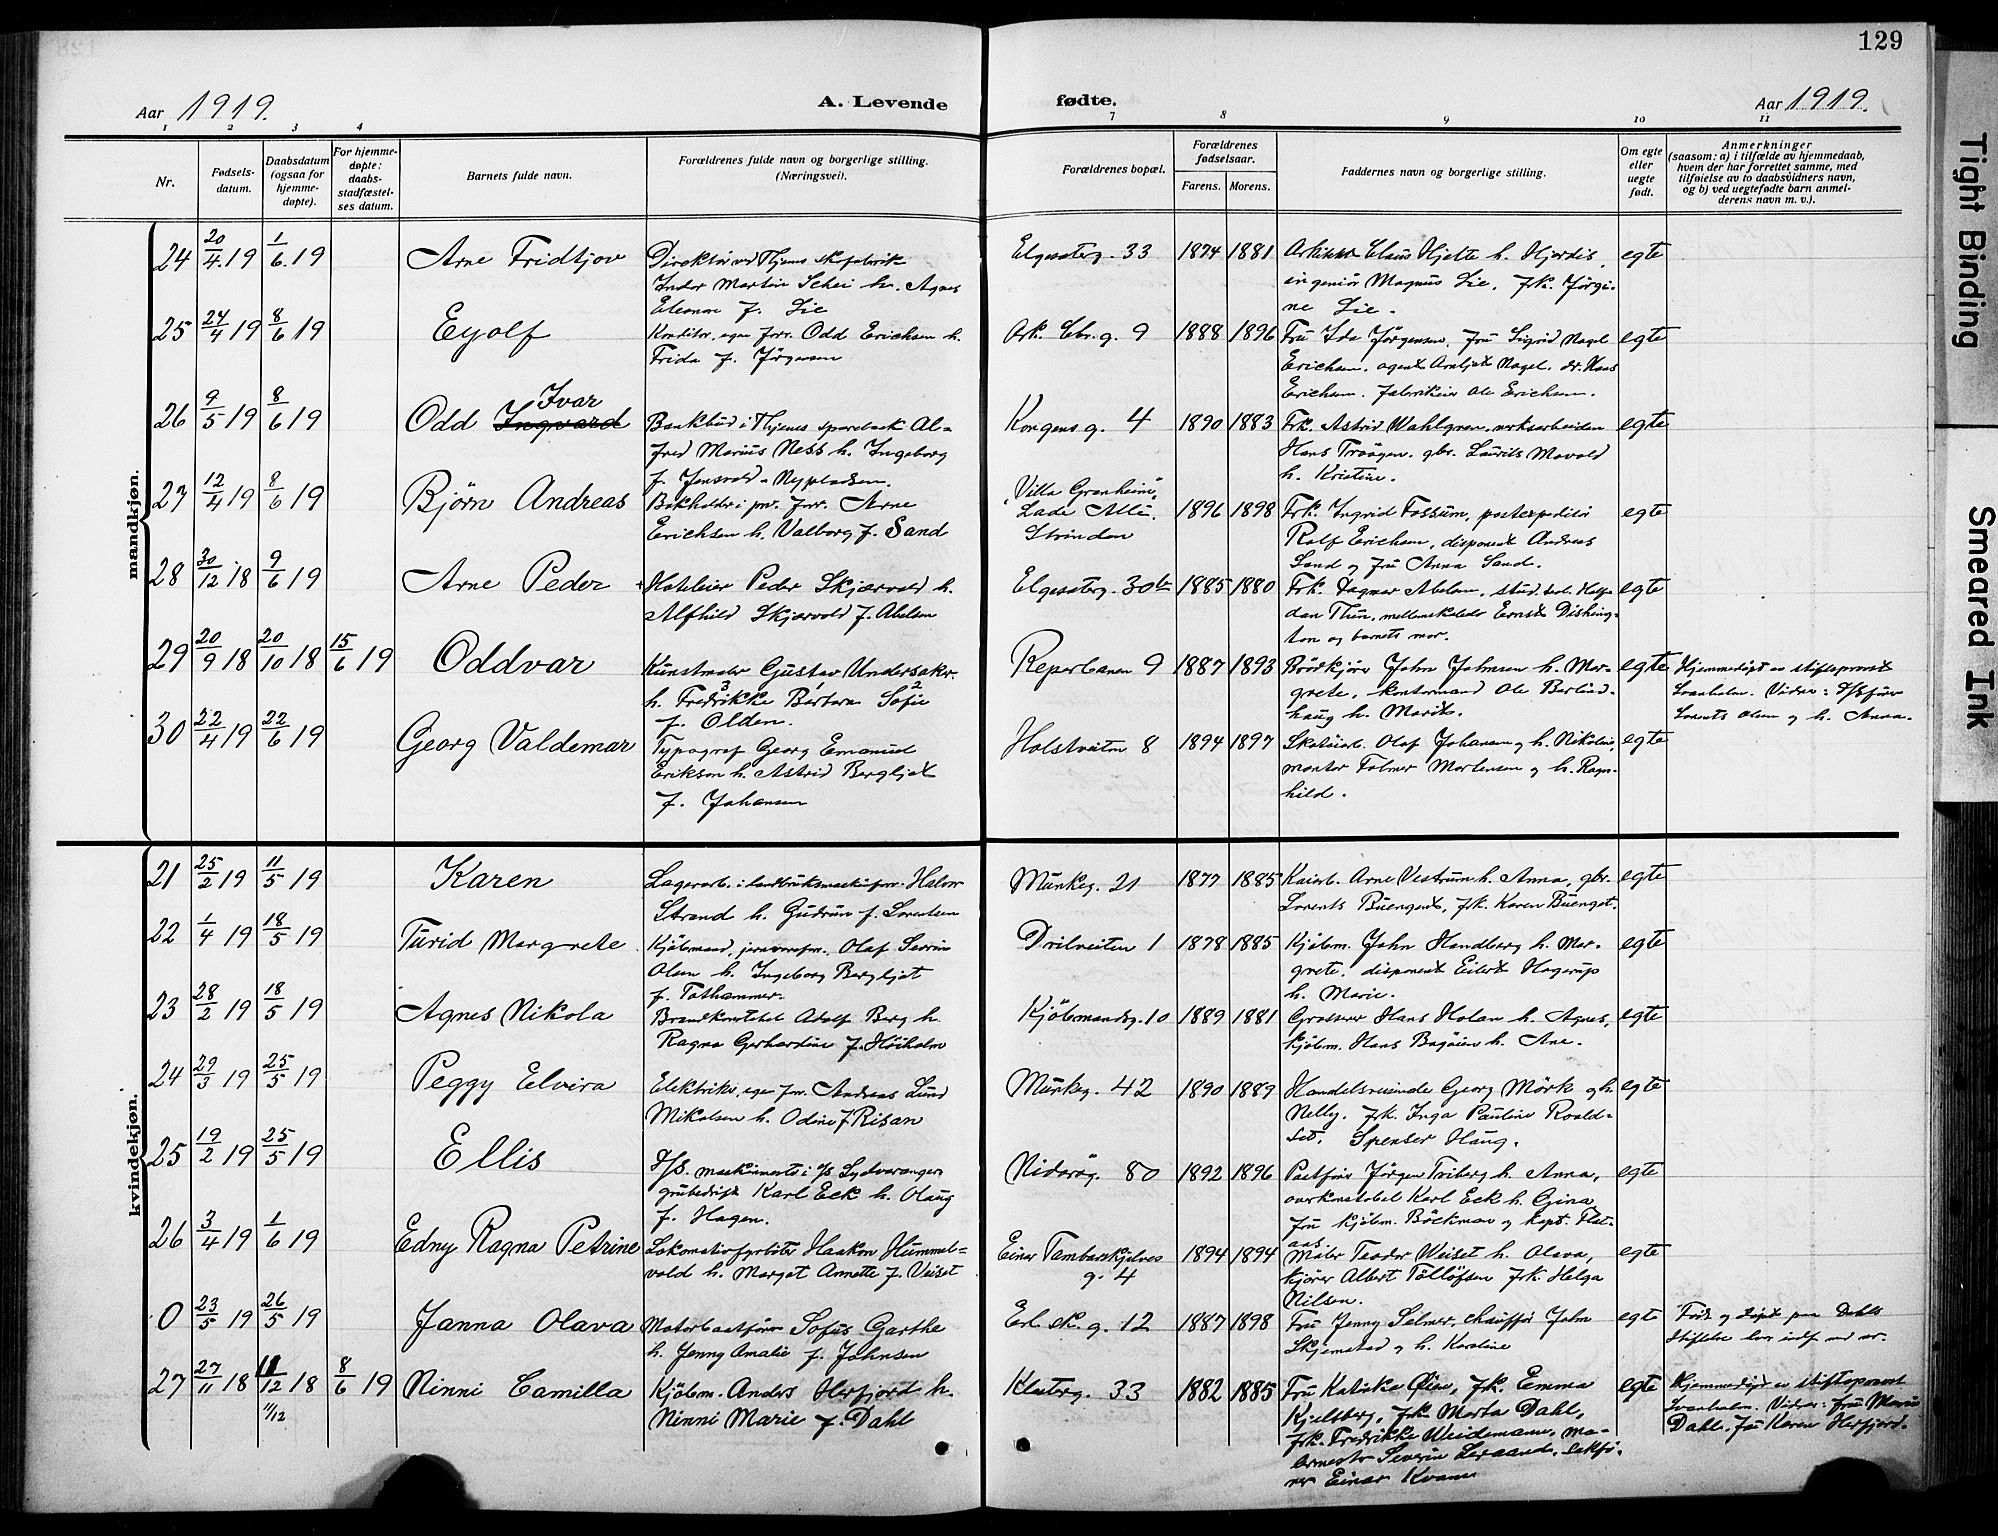 129
Aar 1919.
A. Levende
fødte.
Aar 1919.
1 2 3 4
7 8 9 10 11
Nr.
Fødsels-
datum.
Daabsdatum
(ogsaa for
hjemme-
døpte).
For hjemme-
døpte:
daabs-
stadfæstel-
ses datum.
Barnets fulde navn.
Forældrenes fulde navn og borgerlige stilling.
(Næringsvei).
Forældrenes bopæl.
Forældrenes
fødselsaar.
Farens. Morens.
Faddernes navn og borgerlige stilling.
Om egte
eller
uegte
født.
Anmerkninger
(saasom: a) i tilfælde av hjemmedaab,
hvem der har forrettet samme, med
tilføielse av to daabsvidners navn,
og b) ved uegtefødte barn anmel-
derens navn m. v.).
mandkjøn.
24 20/4 19 1/6 19 Arne Fridtjov
Direktør ved Thjems
Martin Schei h. Agnes
Eleonora f. Lie
Elgesæterg. 33 1874 1881
Arkitekt Claus Hjelte h. Hjørdis,
ingeniør Magnus Lie, frk. Jørgi-
ne Lie.
egte
25 24/4 19 8/6 19 Eyolf
Konditor, egen forr. Odd Erichsen h.
Frida f. Jørgensen
Erk. Cbr. g. 9 1888 1896
Fru Ida Jørgensen, Fru Sigrid Nagel
Erichsen, agent Arnljot Nagel, dr. Hans
Erichsen, fabrikeier Ole Erichsen.
egte
26 9/5 19 8/6 19 Odd Ingvard Ivar
Bankbud i Thjems sparebank Al-
fred Marius Ness h. Ingeborg
f. Jensvold - Nypladsen.
Kongens g. 4 1890 1883
Frk. Astrid Wahlgren, verksarbeider
Hans Trøøgen, gbr. Laurits Movold
h. Kristine.
egte
27 12/4 19 8/6 19 Bjørn Andreas
Bokholder i pr. forr. Arne
Erichsen h. Valborg f. Sand
"Villa Granheim",
Lade Allé.
Strinden
1896 1898
Frk. Ingrid Fossum, postexpeditør
Rolf Erichsen, disponent Andreas
Sand og fru Anna Sand.
egte
28 30/12 18 9/6 19 Arne Peder
Hoteleier Peder Skjærvold h.
Alfhild Skjærvold f. Abelsen
Elgesæterg. 30b 1885 1880
Frk. Dagmar Abelsen, stud. Half-
dan Thun, Ernst Dishing-
ton og barnets mor.
egte
29 20/9 18 20/10 18 15/6 19 Oddvar
Kunstmaler Gustav Undersaker
h. Fredrikke Barbara Sofie
f. Olden.
Reperbanen 9 1887 1893
Brødkjører John Johnsen h. Mar-
grete, kontormand Ole Berlind-
haug h. Marit.
egte
Hjemmedøpt av stiftsprovst
Svanholm. Vidner:
Lorents Olsen og h. Anna.
30 22/4 19 22/6 19 Georg Valdemar
Typograf Georg Emanuel
Erikson h. Astrid Bergljot
f. Johansen
Holstveiten 8 1894 1897
Olaf Johansen og h. Nikoline,
montør Folmer Mortensen og h. Ragn-
hild.
egte
kvindekjøn.
21 25/2 19 11/5 19 Karen
Lagerarb. i landbruksmaskinforr. Halvor
Strand h. Gudrun f. Lorentsen
Munkeg. 21 1877 1885
Kaiarb. Arne Vestrum h. Anna, gbr.
Lorents Buenget, frk. Karen Buenget.
egte
22 1/4 19 18/5 19 Turid Margrete
Kjøbmand, jernvareforr., Olaf Sverre
Olsen h. Ingeborg Bergljot
f. Tothammer.
Prilveiten 1 1878 1885
Kjøbm. John Handberg h. Mar-
grete, disponent Eilert Hagerup
h. Marie.
egte
23 28/2 19 18/5 19 Agnes Nikola
Brandkonstabel Adolf Berg h.
Ragna Gerhardine f. Høiholm
Kjøbmandsg. 10 1889 1881
Grosserer Hans Holan h. Agnes,
kjøbm. Hans Bagøien h. Ane.
egte
24 29/3 19 25/5 19 Peggy Elvira
Elektriker, egen forr. Andreas Lund
Mikalsen h. Odine f. Risan
Munkeg. 42 1890 1889
Handelsreisende Georg Mørk og h.
Nelly, frk. Inga Pauline Roald-
set, Spenser Haug.
egte
25 19/2 19 25/5 19 Ellis
maskinmester i A/S Sydvaranger
grubedrift Karl Eck h. Olaug
f. Hagen.
Nidarøg. 80 1892 1896
Postfører Jørgen Friberg h. Anna,
overkonstabel Karl Eck h. Gina,
fru kjøbm. Bøckman og kapt. Flat-
aas.
egte
26 3/4 19 1/6 19 Edny Ragna Petrine
Lokomotivfyrbøter Haakon Hummel-
vold h. Margot Annette f. Veiset
Einar Tambarskjelves
g. 4 1894 1894
Maler Teodor Veiset h. Olava,
kjører Albert Tølløfsen frk. Helga
Nilsen.
egte
0 23/5 19 26/5 19 Janna Olava
Motorbaatfører Sofus Garthe
h. Jenny Amalie f. Johnsen
Erl. sk. g. 12 1887 1898
Fru Jenny Selmer, chauffør John
Skjemstad og h. Karoline
egte
Født og døpt paa Dahls
Stiftelse
27 27/11 18 11/12 18 8/6 19 Ninni Camilla
11/12
Kjøbm. Anders Herfjord h.
Ninni Marie f. Dahl
Klosterg. 33 1882 1885
Fru Katinka Øien, frk. Emma
Kjelsberg, frk. Marta Dahl,
frk. Fredrikke Weidemann, ma-
Severin Leraand,
Einar Kvam
egte
Hjemmedøpt av stiftsprovst
Svanholm. Vidner: fru Marie
Dahl, fru Karen Herfjord.
Tight Binding
Smeared Ink